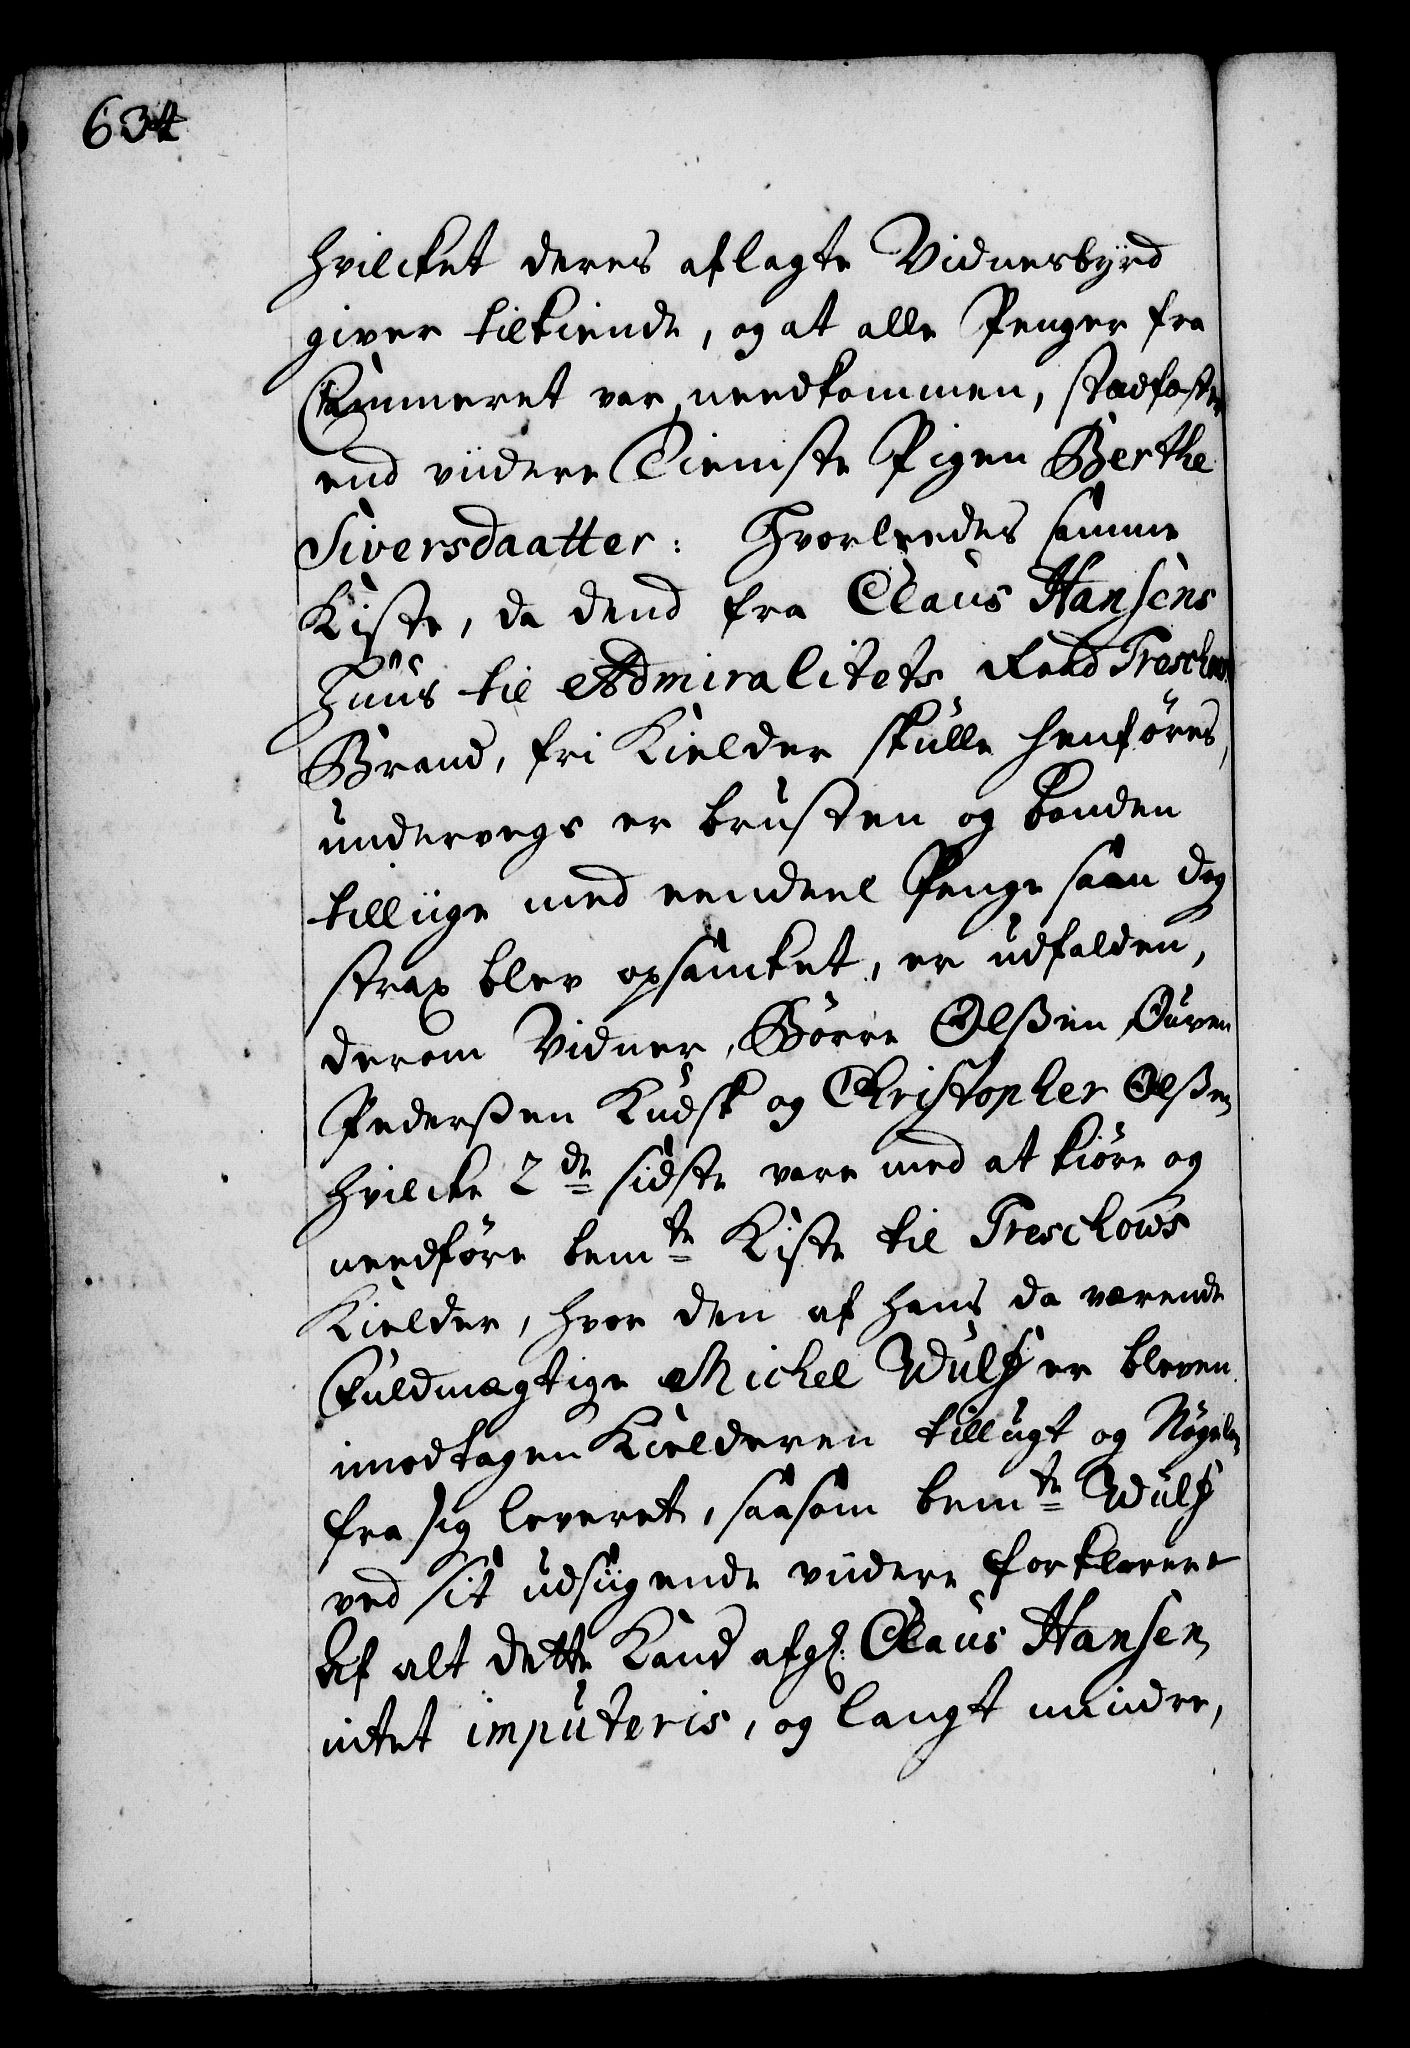 634
hvilcket deres aflagte Vidnesbyrd
giver tilkiende, og at alle Penger fra
Cammeret var needkommen, stadfæster
end viidere Tieniste Pigen Berthe
Siversdaatter: Hvorleedes samme
Kiste, da dend fra Claus Hansens
Huus til Admiralitets Raad Treschows
Brand, fri Kielder skulle henføres,
underveygs er brusten og bonden
tilliige med eendeel Penge saan dog
strax blev opsancket, er udfalden,
derom Vidner, Børre Olssen Outen
Pederssen Kudsk og Christopher Olssen
hvilcke 2de sidste vare med at kiøre og
needføre bemte Kiste til Treschows
Kielder, hvor den af hans da værende
Fuldmægtige Michel Wulf er bleven
imodtagen Kielderen tillugt og Nøgelen
fra sig leveret, saasom bemte Wulf
ved sit udsiigende viidere forklarer
Af alt dette kand afgl: Claus Hansen
intet imputeris, og langt mindre,